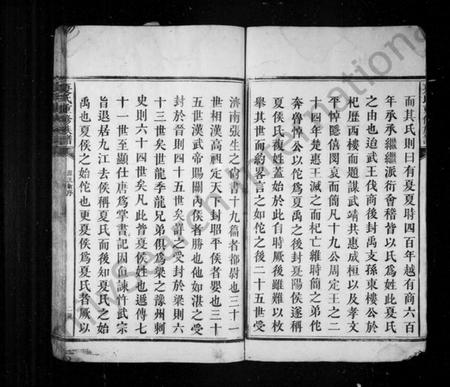 而其氏則日有夏夏時四百年越有商六百
年承承繼繼派衍會稽皆以氏為姓此夏氏
之由也迨武王伐商後封禹支孫東樓公於
杞歷西樓而題謀武靖共惠成桓以及孝文
平悼隱僖閔哀而簡凡十九公周定王之二
十四年楚惠王滅之而杞亡維時簡之弟佗
奔魯悼公以佗為夏禹之後封夏陽侯遂稱
夏侯氏復姓蓋始於此自時厥後雖難以枚
舉其世而約畧言之如佗之後二十五世受
濟南張生之尚書十九篇者都尉也三十一
世相漢高祖定天下封耶平侯者嬰也三十
五世漢武帝賜關內侯者勝也他如湛之受
封於晉則四十五世矣詳之受封於梁則六
十三世矣世龍季龍兄弟俱為梁之豫州刺
史則六十四世矣凡此皆夏侯姓也遞傳七
十一世至顯仕唐為掌書記因直諫忤武宗
旨退居九江去侯稱夏氏而後知夏氏之始
禹也夏侯之始佗也更夏侯為夏氏者厥以